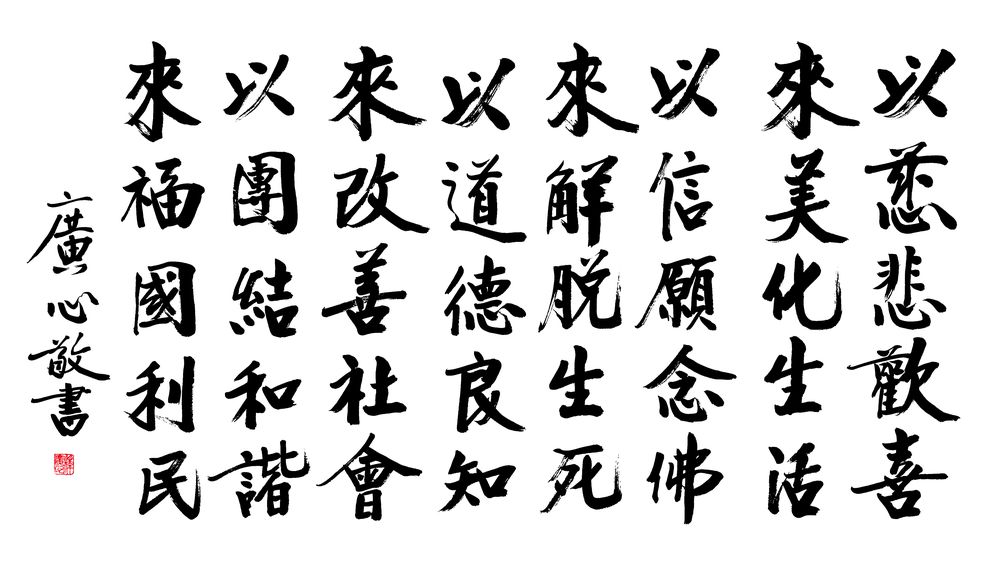 以慈悲歡喜
來美化生活
以信願念佛
來解脫生死
以道德良知
來改善社會
以團結和諧
來福國利民
廣心敬書